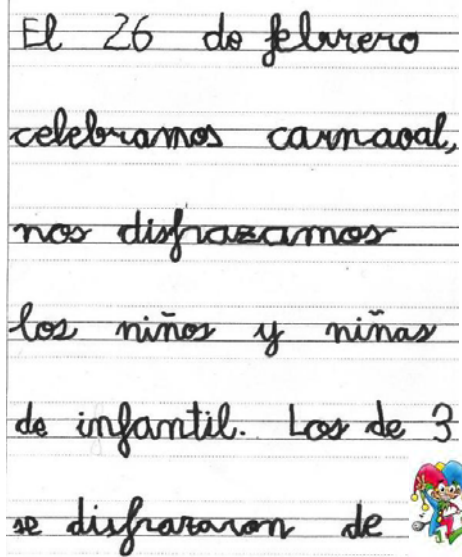 El 26 de febrero
celebramos carnaval,
nos disfrazamos
los niños y niñas
de infantil. Los de 3
se disfrazaron de